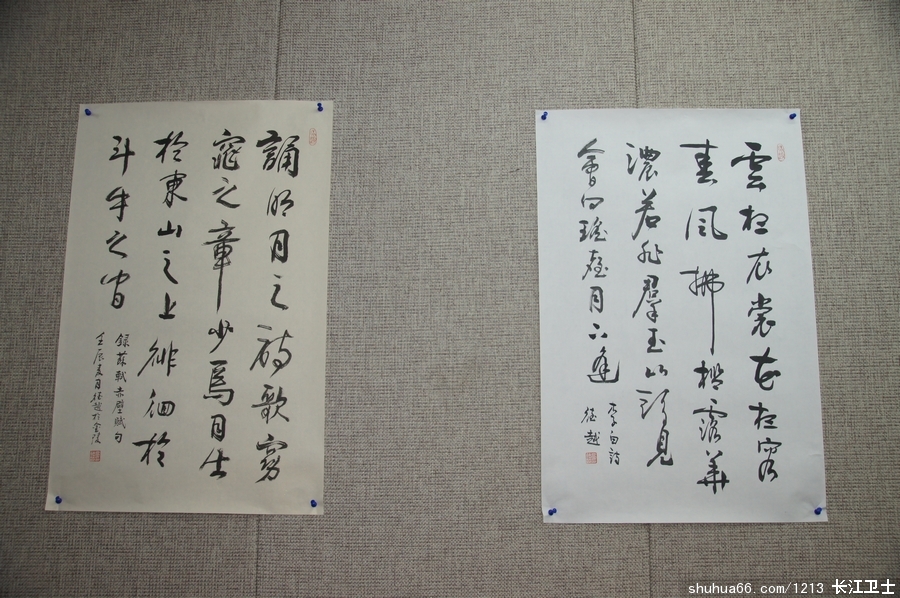 誦明月之詩歌窈
窕之章少焉月出
於東山之上徘徊於
斗牛之間
錄蘇軾赤壁賦句
壬辰夏月征越於金陵
雲想衣裳花想容
春風拂檻露華
濃若非羣玉山頭見
會向瑤臺月下逢
李白詩
征越
shuhua66.com/1213 长江卫士